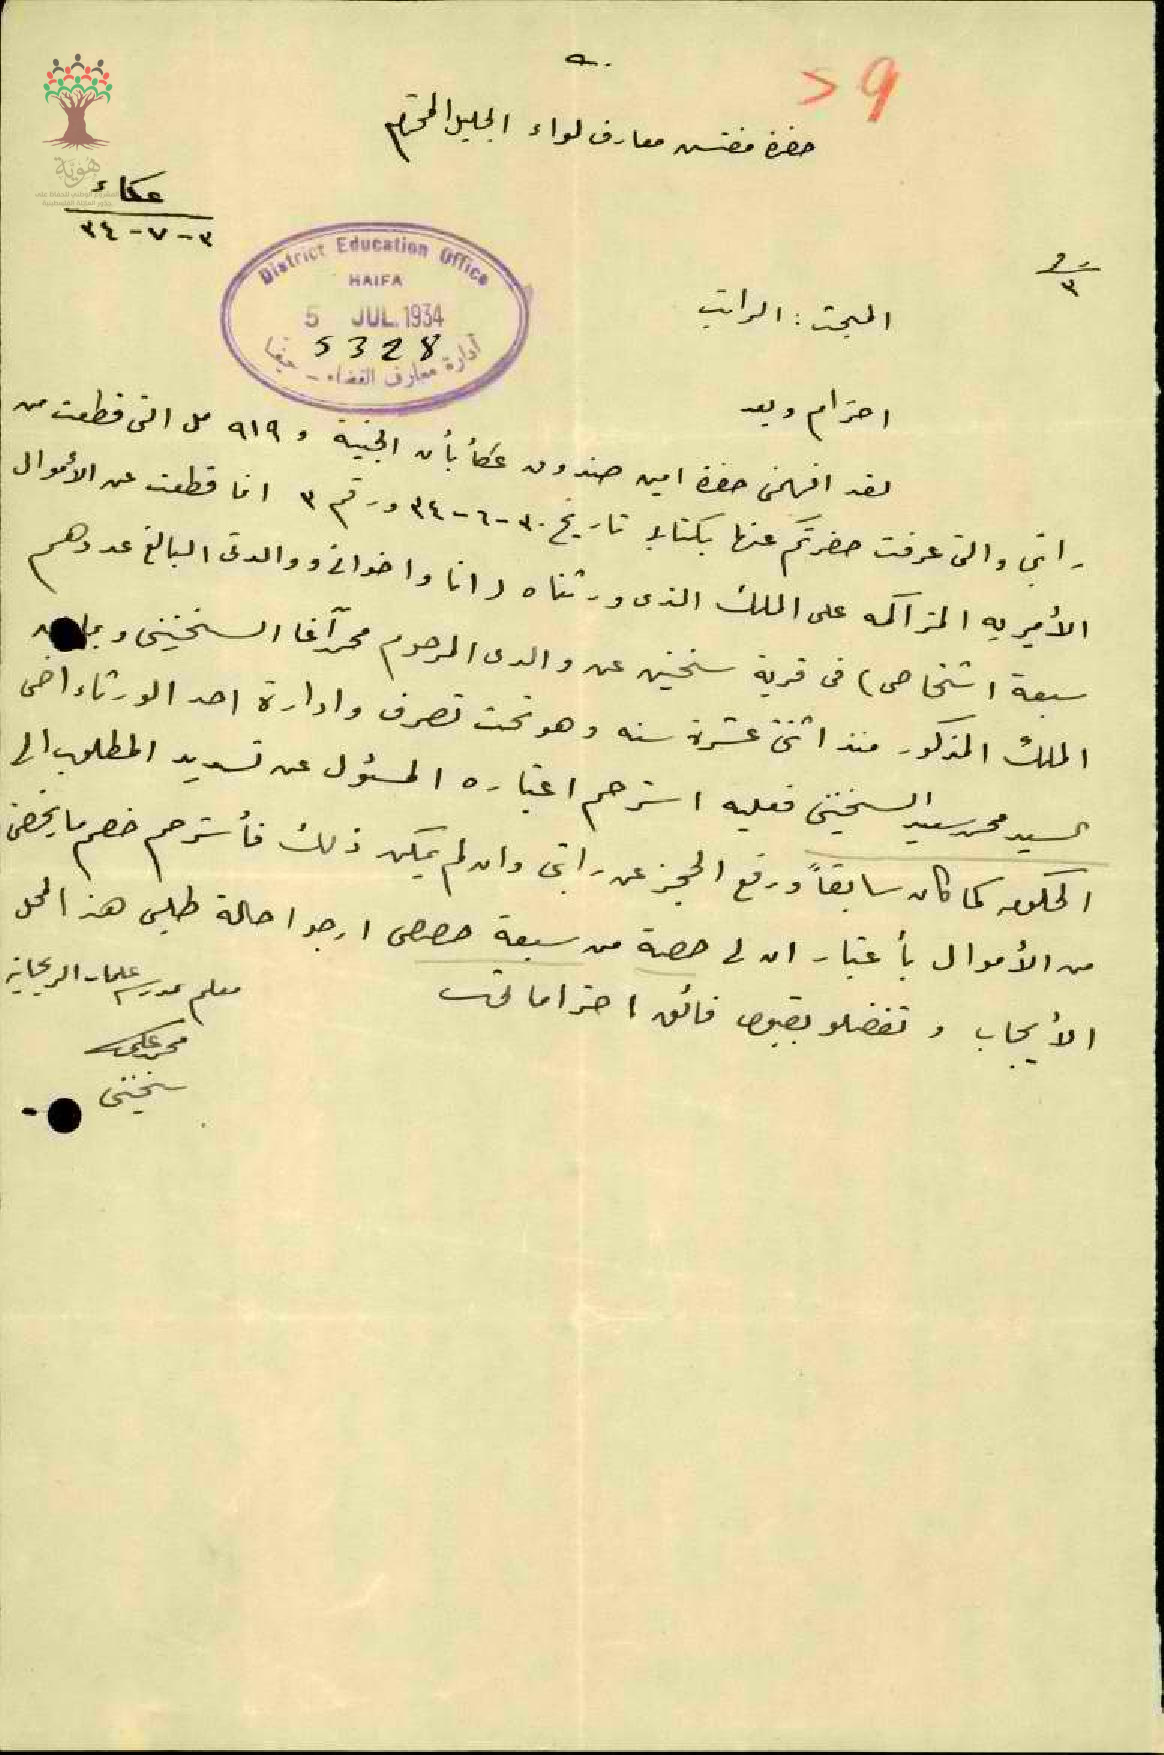 ٢٩
حضرة مفتش معارف لواء الجليل المحترم
عكاء
٣-٧-٣٤
District Education Office
HAIFA
5 JUL. 1934
5328
أدارة معارف القضاء - حيفا
٣
المبحث: الراتب
احترام وبعد
لقد افهمني حضرة امين صندوق عكا بأن الجنيه و ٩١٩ مل التي قطعت من
راتبي والتي عرفت حضرتكم عنها بكتابي تاريخ ٣٠-٦-٣٤ ورقم ٣ انما قطعت عن الأموال
الأميريه المتراكمه على الملك الذى ورثناه (انا واخواني ووالدتي البالغ عددهم
سبعة اشخاص) في قرية سخنين عن والدى المرحوم محمد آغا السخنيني وبما ان
الملك المذكور منذ اثنتي عشرة سنه وهو تحت تصرف وادارة احد الورثاء اخي
السيد محمد سعيد السخنيني فعليه استرحم اعتباره المسئول عن تسديد المطلوب الى
الحكومه كما كان سابقاً ورفع الحجز عن راتبي وان لم يكن ذلك فأسترحم خصم ما يخصني
من الأموال بأعتبار ان لي حصة من سبعة حصص ارجو احالة طلبي هذا لمحل
الأيجاب وتفضلو بقبول فائق احتراماتي
معلم مدرسة علما - الريحانيه
محمد علي
سخنيني
هُويّة
المشروع الوطني للحفاظ على
جذور العائلة الفلسطينية